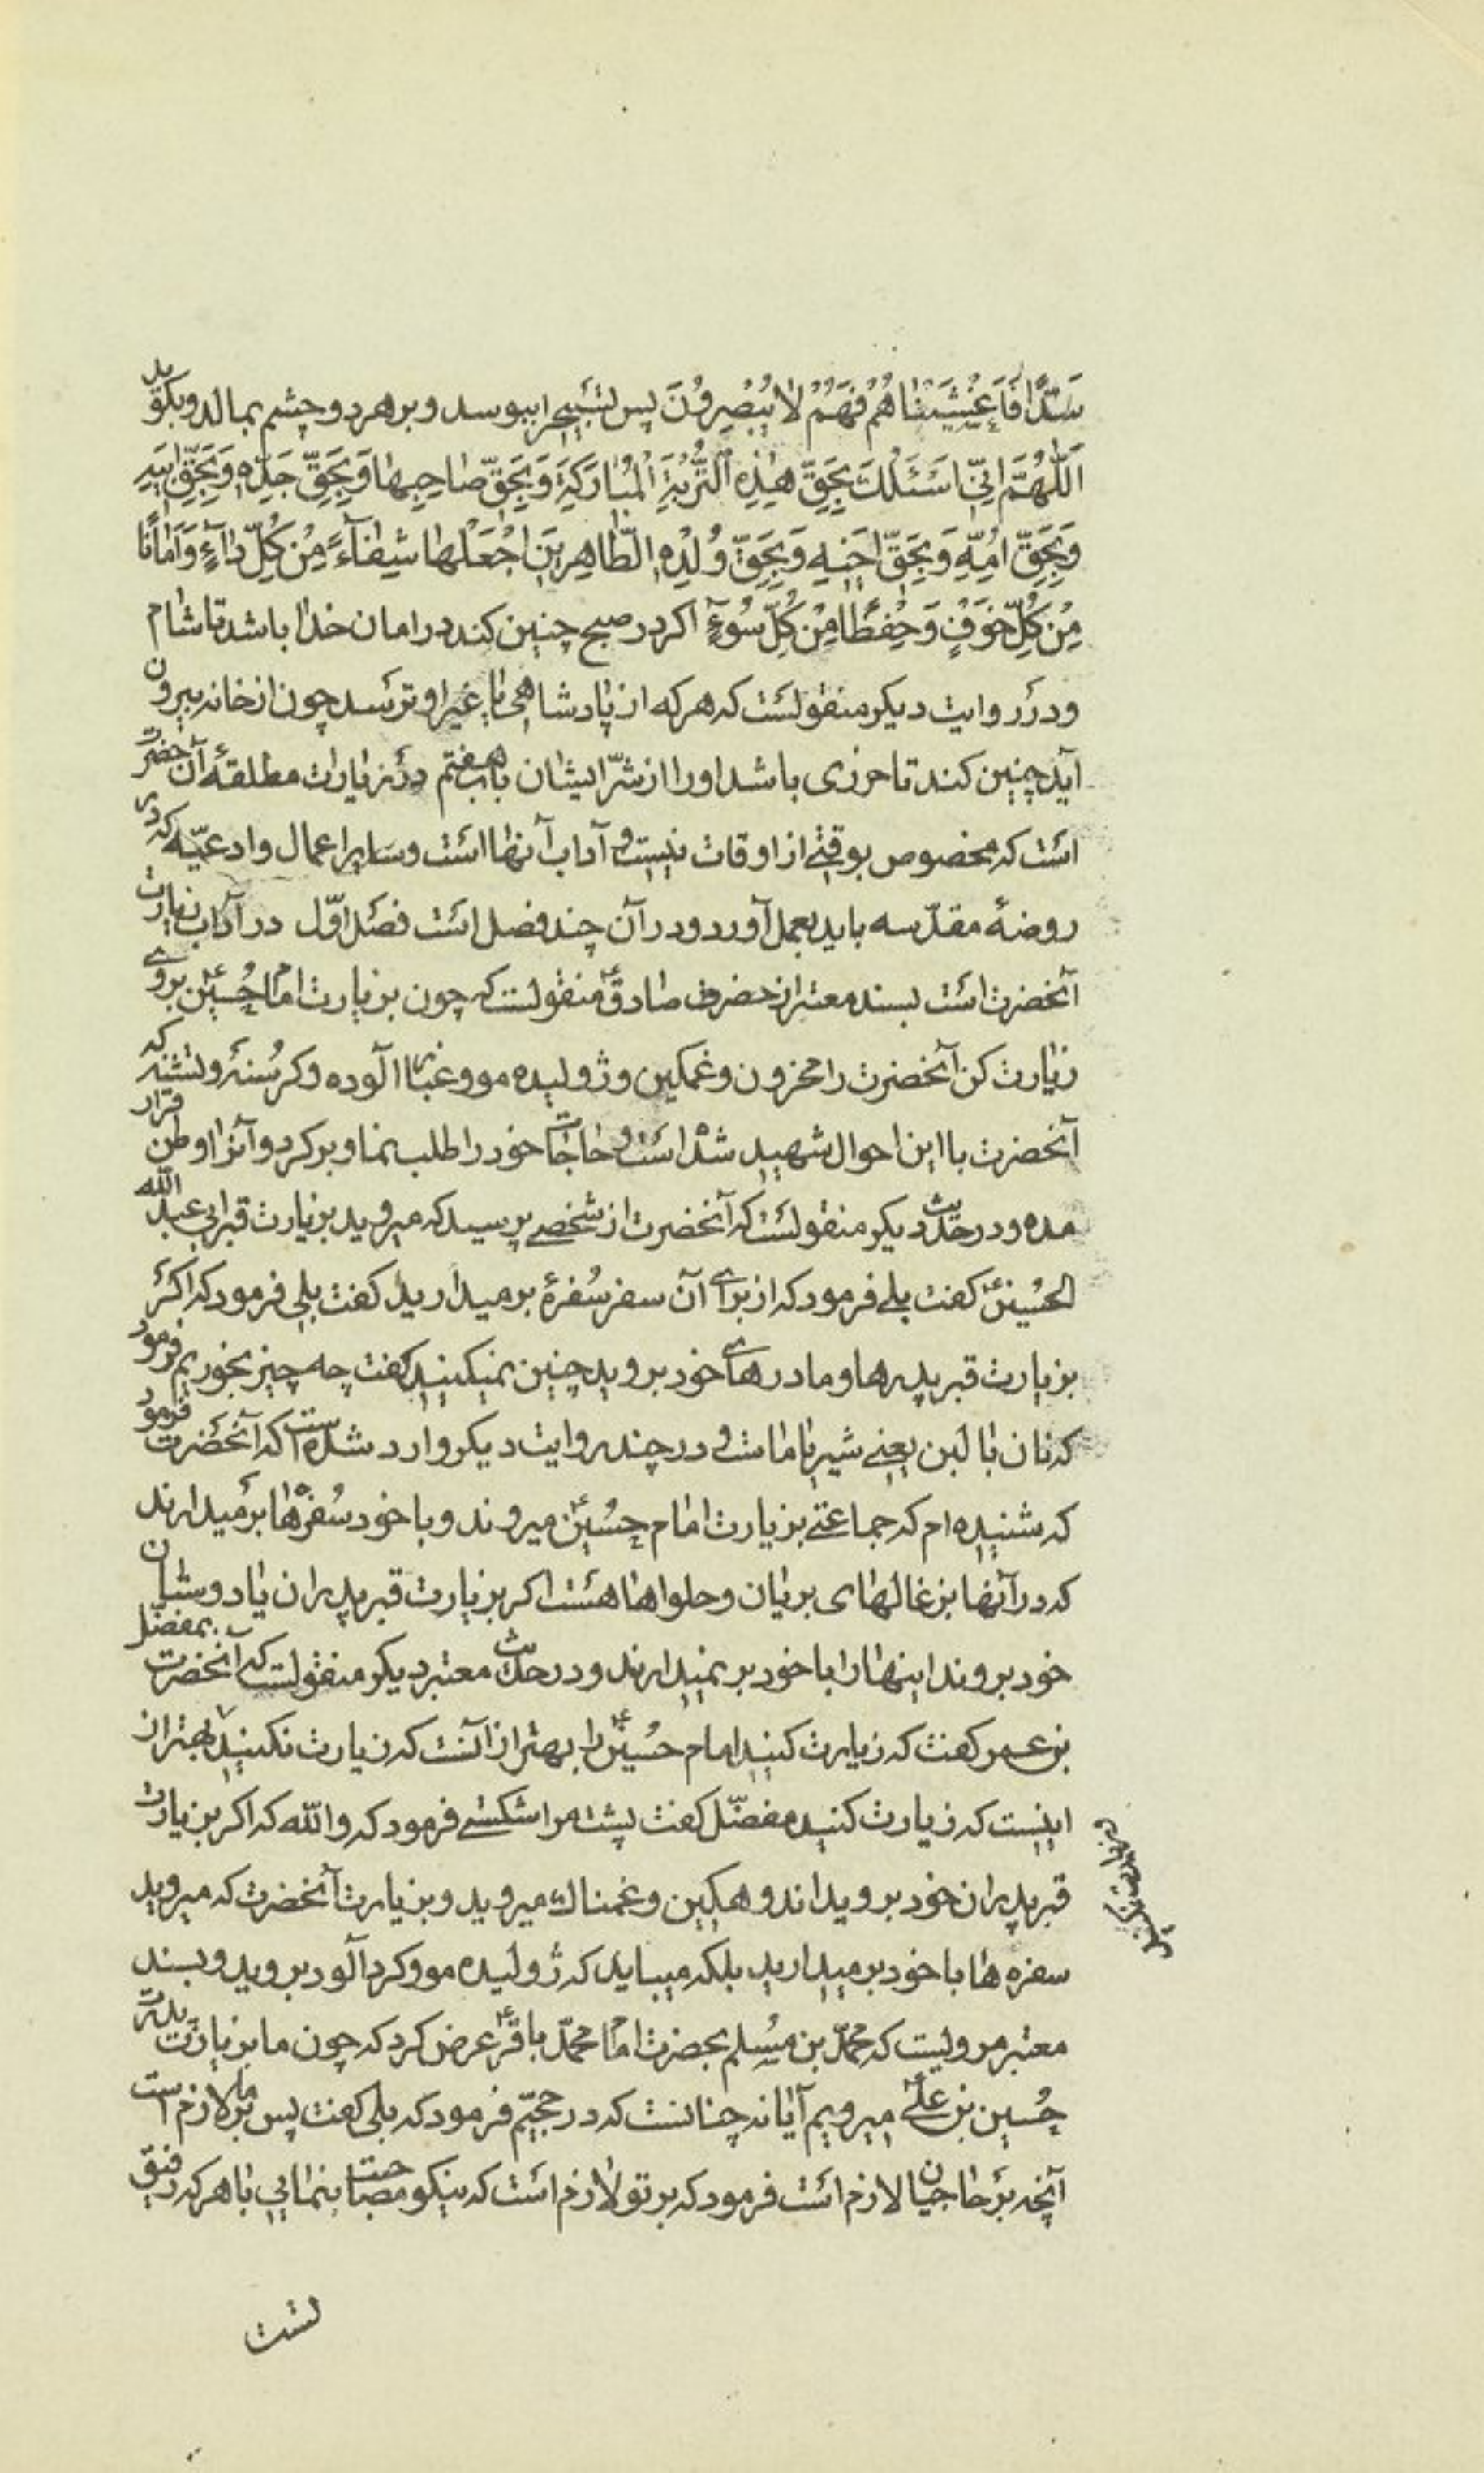 سَدًّا فَاَغْشَیْنٰاهُمْ فَهُمْ لٰا یُبْصِرُونَ پس تسبیح را ببوسد و بر هر دو چشم بمالد و بکوید
اَللّٰهُمَّ اِنّی اَسْئَلُكَ بِحَقِّ هٰذِهِ التُّرْبَةِ الْمُبٰارَكَةِ وَ بِحَقِّ صٰاحِبِهٰا وَ بِحَقِّ جَدِّهِ وَ بِحَقِّ اَبیهِ
وَ بِحَقِّ اُمِّهِ وَ بِحَقِّ اَخیهِ وَ بِحَقِّ وُلْدِهِ الطّٰاهِرینَ اجْعَلْهٰا شِفٰآءً مِنْ كُلِّ دٰآءٍ وَ اَمٰانًا
مِنْ كُلِّ خَوْفٍ وَ حِفْظًا مِنْ كُلِّ سُوءٍ اکر در صبح چنین کند در امان خدا باشد تا شام
و در روایت دیکر منقولست که هر که از پادشاهی یا غیر او ترسد چون از خانه بیرون
آید چنین کند تا حرزی باشد او را از شرّ ایشان باب هفتم در زیارات مطلقهٔ آن حضرت
است که مخصوص بوقتی از اوقات نیست و آداب آنها است و سایر اعمال و ادعیّه که در
روضهٔ مقدّسه باید بعمل آورد و در آن چند فصل است فصل اوّل در آداب زیارت
آنحضرت است بسند معتبر از حضرت صادق ع منقولست که چون بزیارت امام حسین ع بروی
زیارت کن آنحضرت را محزون و غمکین و ژولیده مو و غبار آلوده و کرسنه و تشنه که
آنحضرت با این احوال شهید شده است و حاجات خود را طلب نما و برکرد و آنرا وطن قرار
مده و در حدیث دیکر منقولست که آنحضرت از شخصی پرسید که میروید بزیارت قبر ابی عبد الله
الحسین ع کفت بلی فرمود که از برای آن سفر سفرهٔ برمیدارید کفت بلی فرمود که اکر
بزیارت قبر پدرها و مادرهای خود بروید چنین نمیکنید کفت چه چیز بخوریم فرمود
که نان با لبن یعنی شیر یا ماست و در چند روایت دیکر وارد شده است که آنحضرت فرمود
که شنیده ام که جماعتی بزیارت امام حسین ع میروند و با خود سفره ها برمیدارند
که در آنها بزغالهای بریان و حلواها هست اکر بزیارت قبر پدران یا دوستان
خود بروند اینها را با خود بر نمیدارند و در حدیث معتبر دیکر منقولست که آنحضرت بمفضل
بن عمر کفت که زیارت کنید امام حسین ع را بهتر از آنست که زیارت نکنید و بهتر از
اینست که زیارت کنید مفضّل کفت پشت مرا شکستی فرمود که والله که اکر بزیارت
قبر پدران خود بروید اندوهکین و غمناك میروید و بزیارت آنحضرت که میروید
سفره ها با خود برمیدارید بلکه میباید که ژولیده مو و کرد آلود بروید و بسند
معتبر مرویست که محمّد بن مسلم بحضرت امام محمّد باقر ع عرض کرد که چون ما بزیارت پدرت
حسین بن علی ع میرویم آیا نه چنانست که در حجیّم فرمود که بلی کفت پس بر ما لازم است
آنچه بر حاجیان لازم است فرمود که بر تو لازم است که نیکو مصاحبت بنمایی با هر که رفیق
زیارت نکنید
تست